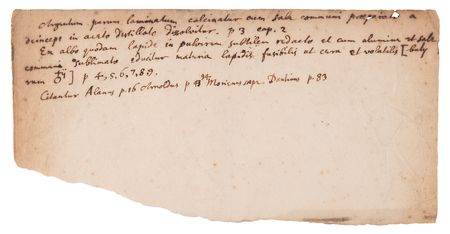 Argentum purum laminatum calcinatur cum sale communi præparato a
deinceps in aceto distillato dissolvitur. p 3 cap. 2
Ex albo quodam lapide in pulverem subtilem redacto et cum alumine et sale
communi sublimato educitur materia lapidis fusibilis ut cera et volatilis [buty
rum ] p 4, 5, 6, 7, 8, 9.
Citantur Alanus p. 16 Arnoldus p Morienus sæpe. Dentinus p. 83